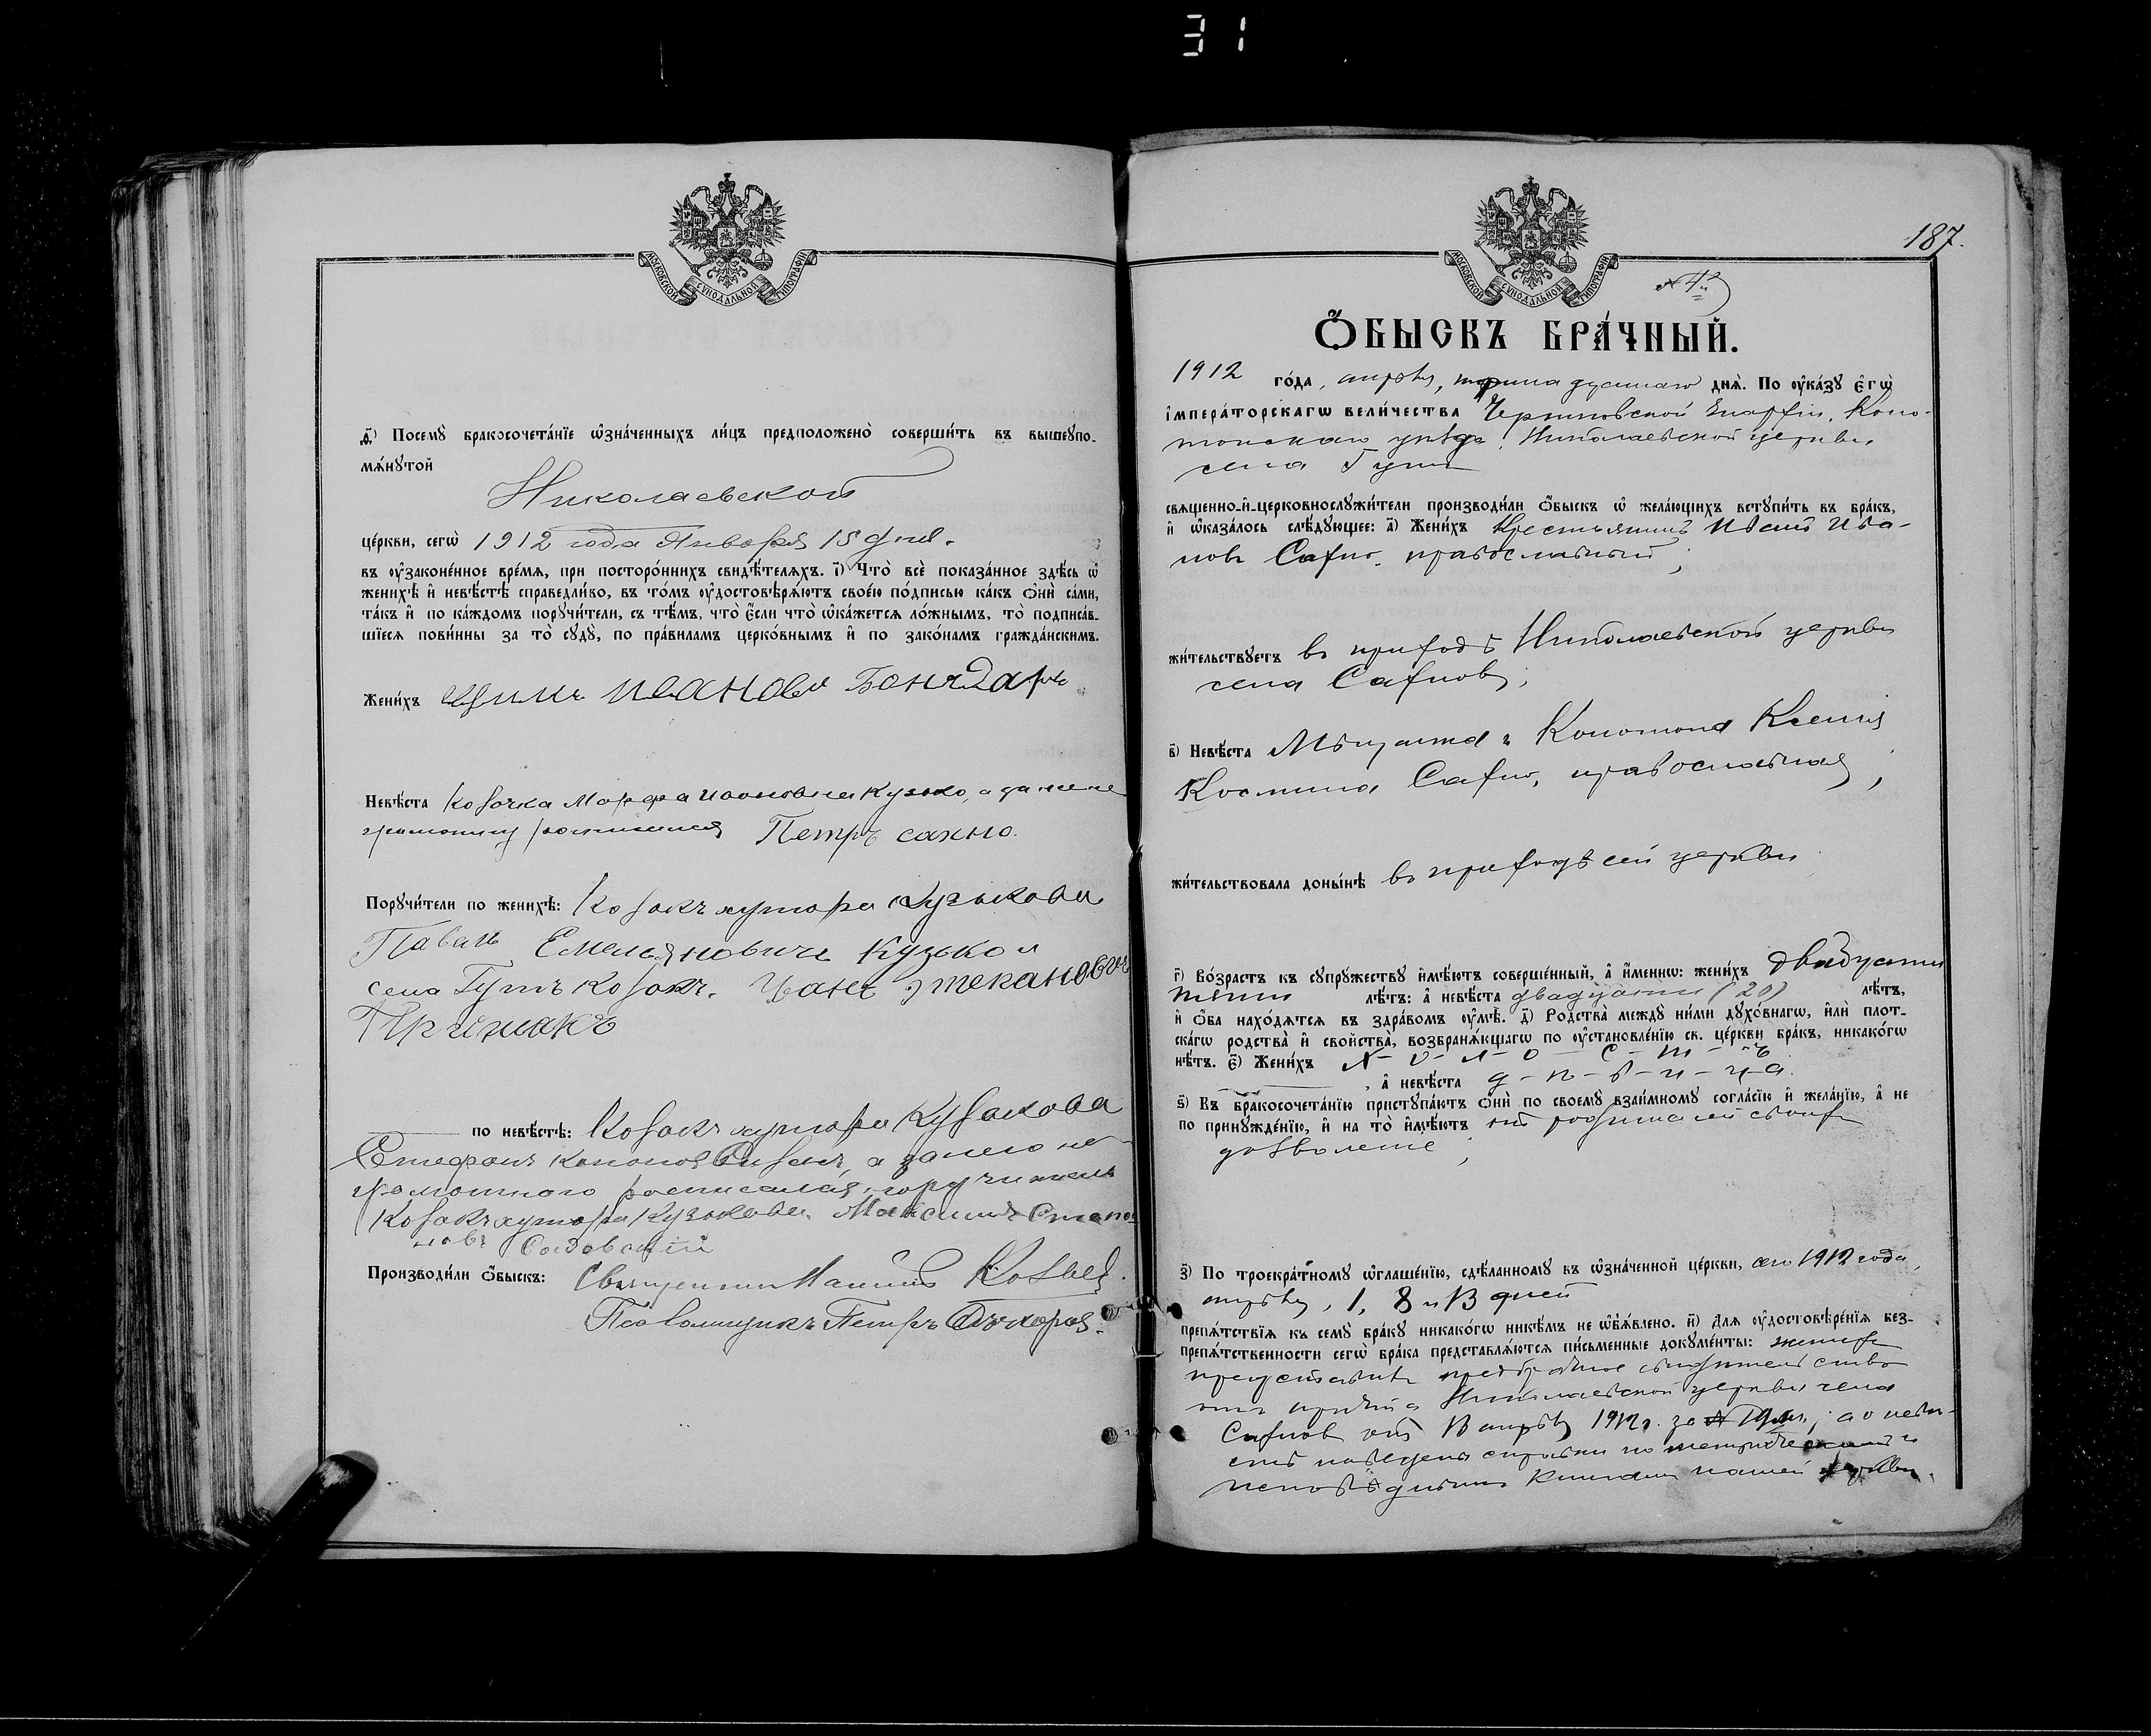 31
МОСКОВСКОЙ СѴНОДАЛЬНОЙ ТИПОГРАФІИ
д҃) Посемꙋ бракосочета́нїе ѡ҆зна́ченныхъ ли́цъ предположено̀ соверши́ть въ вышеꙋпо-
мѧ́нꙋтой
Николаевской
це́ркви, сегѡ̀ 1912 года Января 15 дня.
въ ᲂу҆законе́нное вре́мѧ, при посторо́ннихъ свидѣ́телѧхъ. і҃) Что̀ всѐ пока́занное здѣ́сь ѡ҆
женихѣ̀ и҆ невѣ́стѣ справедли́во, въ то́мъ ᲂу҆достовѣрѧ́ютъ свое́ю по́дписью ка́къ ѻ҆нѝ са́ми,
та́къ и҆ по ка́ждомъ порꙋчи́тели, съ тѣ́мъ, что̀ є҆́сли что̀ ѡ҆ка́жетсѧ ло́жнымъ, то̀ подписа́в-
шїесѧ пови́нны за то̀ сꙋдꙋ̀, по пра́виламъ церко́внымъ и҆ по зако́намъ гражда́нскимъ.
Жени́хъ Ивановъ Бондарь
Невѣ́ста Козачка Марфа Кузько, а за нее не
грамотную росписался Петръ сахно.
Порꙋчи́тели по женихѣ̀: Козакъ хутора Кузькова
Павелъ Емельяновичъ Кузько и
села Гутъ козакъ Иванъ Стекановичъ
Примакъ
по невѣ́стѣ: Козакъ хутора Кузькова
Стефанъ а за него не
грамотнаго росписался поручитель
Козакъ хутора Кузькова Максимъ
Садовскій
Производи́ли ѻ҆́быскъ: Священникъ
Псаломщикъ Петръ
187.
МОСКОВСКОЙ СѴНОДАЛЬНОЙ ТИПОГРАФІИ
Ѻ҆́БЫСКЪ БРА́ЧНЫЙ.
1912 го́да, апрѣля, днѧ̀. По ᲂу҆ка́зꙋ є҆гѡ̀
і҆мпера́торскагѡ вели́чества Черниговской Епархіи, Коно-
топскаго уѣзда, Николаевской церкви
села Гутъ
свѧще́нно-и҆-церковнослꙋжи́тели производи́ли ѻ҆́быскъ ѡ҆ жела́ющихъ встꙋпи́ть въ бра́къ,
и҆ ѡ҆каза́лось слѣ́дꙋющее: а҃) Жени́хъ Крестьянинъ Ива-
новъ Сахно, православный;
жи́тельствꙋетъ въ приходѣ Николаевской церкви
села Сахновъ;
в҃) Невѣ́ста Мѣщанка г. Конотопа Ксенія
Космина Сахно, православная;
жи́тельствовала доны́нѣ въ приходѣ сей церкви
г҃) Во́зрастъ къ сꙋпрꙋ́жествꙋ и҆мѣ́ютъ соверше́нный, а҆ и҆́менно: жени́хъ двадцати
лѣ́тъ: а҆ невѣ́ста двадцати (20) лѣ́тъ,
и҆ ѻ҆́ба нахо́дѧтсѧ въ здра́вомъ ᲂу҆мѣ̀. д҃) Родства̀ междꙋ ни́ми дꙋхо́внагѡ, и҆лѝ плот-
ска́гѡ родства̀ и҆ сво́йства̀, возбранѧ́ющагѡ по ᲂу҆становле́нїю св. це́ркви бра́къ, никако́гѡ
нѣ́тъ. є҃) Жени́хъ х-о-л-о-с-т-ъ
, а҆ невѣ́ста д-ѣ-в-и-ц-а.
ѕ҃) Къ бракосочета́нїю пристꙋпа́ютъ ѻ҆нѝ по своемꙋ̀ взаи́мномꙋ согла́сїю и҆ жела́нїю, а҆ не
по принꙋжде́нїю, и҆ на то̀ и҆мѣ́ютъ отъ родителей своихъ
дозволеніе;
з҃) По троекра́тномꙋ ѡ҆глаше́нїю, сдѣ́ланномꙋ въ ѡ҆зна́ченной це́ркви, сего 1912 года,
апрѣля, 1, 8 и 13 дней
препѧ́тствїѧ къ семꙋ̀ бра́кꙋ никако́гѡ никѣ́мъ не ѡ҆б̾ѧ́влено. и҃) Длѧ ᲂу҆достовѣре́нїѧ без-
препѧ́тственности сегѡ̀ бра́ка представлѧ́ютсѧ пи́сьменные докꙋме́нты: женихъ
представилъ предбрачное свидѣтельство
отъ причта Николаевской церкви села
Сахновъ отъ 13 апрѣля 1912 г. за № а о невѣ-
стѣ наведены справки по метрическимъ и
исповѣднымъ книгамъ нашей церкви.